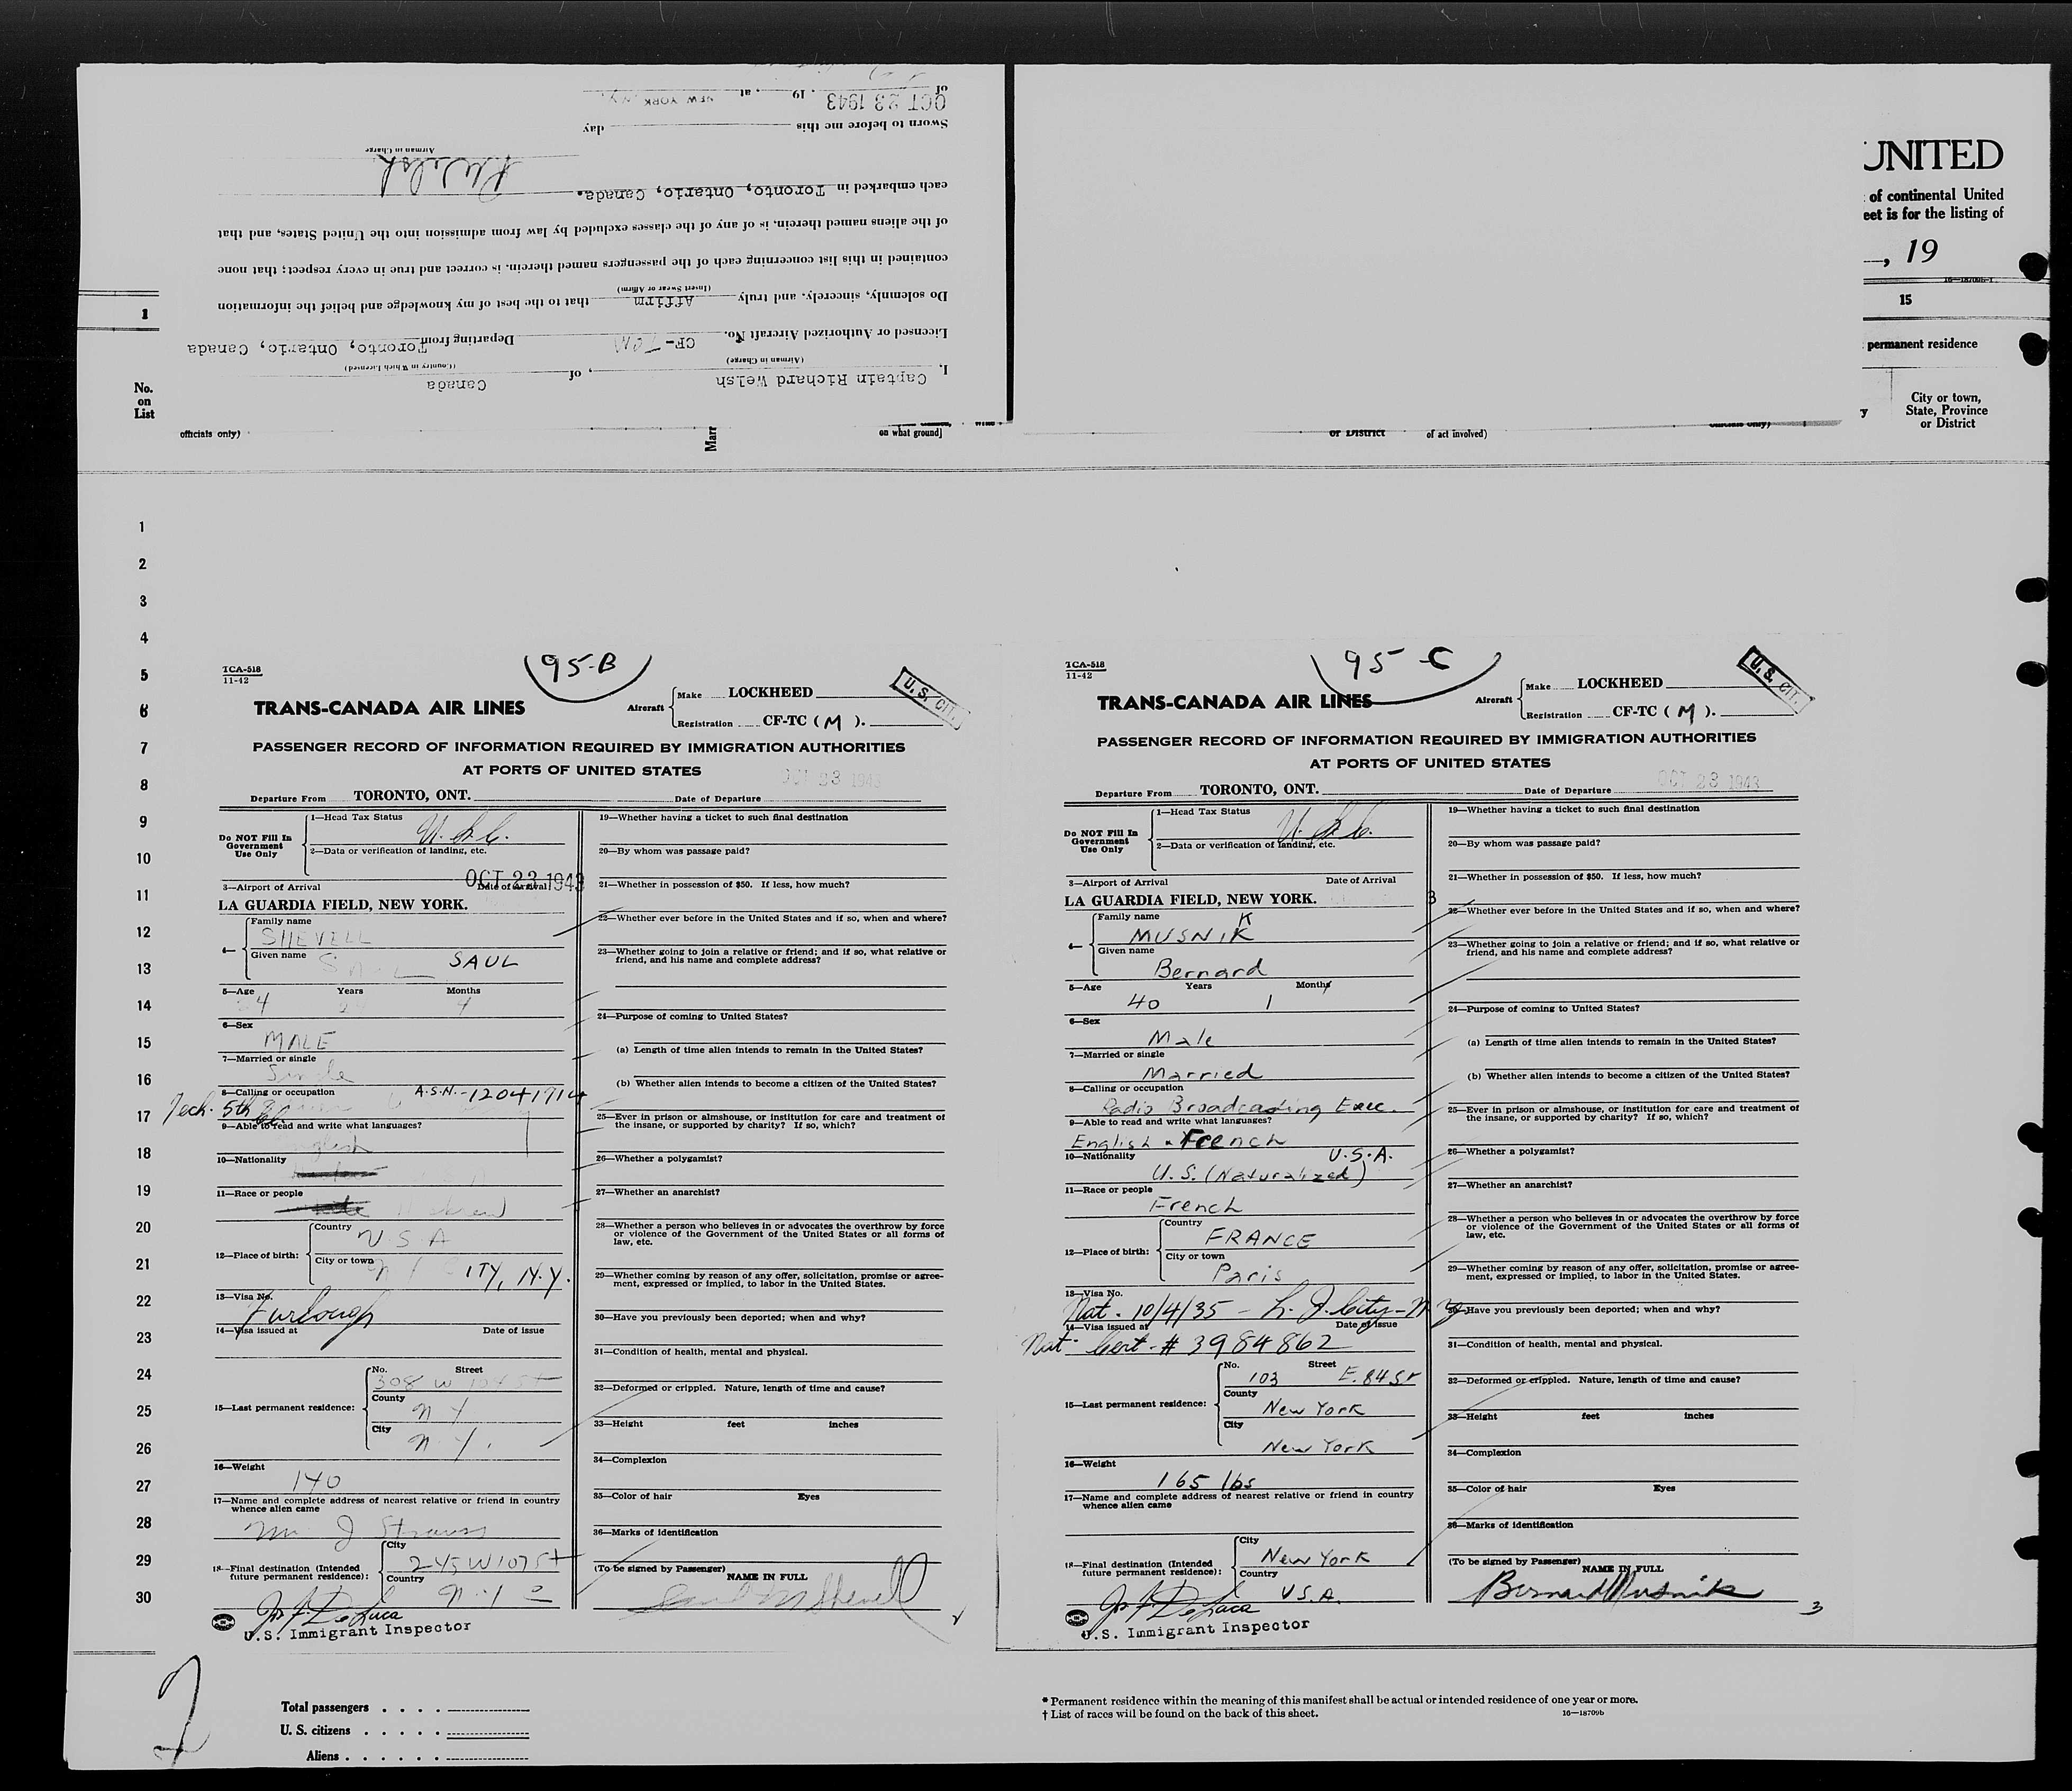 I, Captain Richard Welsh, of Canada
(Airman in Charge) (Country in Which Licensed)
Licensed or Authorized Aircraft No. CF- Departing from Toronto, Ontario, Canada
Do solemnly, sincerely, and truly Affirm that to the best of my knowledge and belief the information
(Insert Swear or Affirm)
contained in this list concerning each of the passengers named therein, is correct and true in every respect; that none
of the aliens named therein, is of any of the classes excluded by law from admission into the United States, and that
each embarked in Toronto, Ontario, Canada.
Airman in Charge
Sworn to before me this day
of OCT 23 1943, 19 , at NEW YORK, N.Y.
UNITED
of continental United
eet is for the listing of
, 19
16-18709b-1
1
15
permanent residence
No.
on
List
City or town,
State, Province
or District
y
officials only)
Marr
on what ground]
or District
of act involved)
officials only)
1
2
3
4
5
6
7
8
9
10
11
12
13
14
15
16
17
18
19
20
21
22
23
24
25
26
27
28
29
30
TCA-518
11-42
95-B
TRANS-CANADA AIR LINES
Aircraft
Make LOCKHEED
Registration CF-TC ( M ).
U.S. CIT.
PASSENGER RECORD OF INFORMATION REQUIRED BY IMMIGRATION AUTHORITIES
AT PORTS OF UNITED STATES
OCT 23 1943
Departure From TORONTO, ONT. Date of Departure
Do NOT Fill In
Government
Use Only
1—Head Tax Status
U.S.C.
2—Data or verification of landing, etc.
3—Airport of Arrival Date of Arrival
OCT 23 1943
LA GUARDIA FIELD, NEW YORK.
4—
Family name
SHEVELL
Given name
SAUL
5—Age Years Months
6—Sex
MALE
7—Married or single
Single
8—Calling or occupation A.S.N.-12041714
Tech. 5th
9—Able to read and write what languages?
10—Nationality
11—Race or people
Hebrew
12—Place of birth:
Country
U S A
City or town
N Y CITY, N.Y.
13—Visa No.
Furlough
14—Visa issued at Date of issue
15—Last permanent residence:
No. Street
308 W
County
N Y
City
N.Y.
16—Weight
140
17—Name and complete address of nearest relative or friend in country
whence alien came
Mr J Strauss
18—Final destination (Intended
future permanent residence):
City
245 W 107 St
Country
N.Y.
Jos. F. DeLuca
U.S. Immigrant Inspector
19—Whether having a ticket to such final destination
20—By whom was passage paid?
21—Whether in possession of $50. If less, how much?
22—Whether ever before in the United States and if so, when and where?
23—Whether going to join a relative or friend; and if so, what relative or
friend, and his name and complete address?
24—Purpose of coming to United States?
(a) Length of time alien intends to remain in the United States?
(b) Whether alien intends to become a citizen of the United States?
25—Ever in prison or almshouse, or institution for care and treatment of
the insane, or supported by charity? If so, which?
26—Whether a polygamist?
27—Whether an anarchist?
28—Whether a person who believes in or advocates the overthrow by force
or violence of the Government of the United States or all forms of
law, etc.
29—Whether coming by reason of any offer, solicitation, promise or agree-
ment, expressed or implied, to labor in the United States.
30—Have you previously been deported; when and why?
31—Condition of health, mental and physical.
32—Deformed or crippled. Nature, length of time and cause?
33—Height feet inches
34—Complexion
35—Color of hair Eyes
36—Marks of identification
(To be signed by Passenger)
NAME IN FULL
Saul M Shevell
TCA-518
11-42
95-C
TRANS-CANADA AIR LINES
Aircraft
Make LOCKHEED
Registration CF-TC ( M ).
U.S. CIT.
PASSENGER RECORD OF INFORMATION REQUIRED BY IMMIGRATION AUTHORITIES
AT PORTS OF UNITED STATES
OCT 23 1943
Departure From TORONTO, ONT. Date of Departure
Do NOT Fill In
Government
Use Only
1—Head Tax Status
U.S.C.
2—Data or verification of landing, etc.
3—Airport of Arrival Date of Arrival
LA GUARDIA FIELD, NEW YORK.
3
4—
Family name K
MUSNIK
Given name
Bernard
5—Age Years Months
40 1
6—Sex
Male
7—Married or single
Married
8—Calling or occupation
Radio Broadcasting Exec.
9—Able to read and write what languages?
English & French
10—Nationality U.S.A.
U.S. (Naturalized)
11—Race or people
French
12—Place of birth:
Country
FRANCE
City or town
Paris
13—Visa No.
Nat. 10/4/35 - L. I. City - N.Y.
14—Visa issued at Date of issue
Nat. Cert. # 3984862
15—Last permanent residence:
No. Street
103 E. 84 St
County
New York
City
New York
16—Weight
165 lbs
17—Name and complete address of nearest relative or friend in country
whence alien came
18—Final destination (Intended
future permanent residence):
City
New York
Country
U.S.A.
Jos. F. DeLuca
U.S. Immigrant Inspector
19—Whether having a ticket to such final destination
20—By whom was passage paid?
21—Whether in possession of $50. If less, how much?
22—Whether ever before in the United States and if so, when and where?
23—Whether going to join a relative or friend; and if so, what relative or
friend, and his name and complete address?
24—Purpose of coming to United States?
(a) Length of time alien intends to remain in the United States?
(b) Whether alien intends to become a citizen of the United States?
25—Ever in prison or almshouse, or institution for care and treatment of
the insane, or supported by charity? If so, which?
26—Whether a polygamist?
27—Whether an anarchist?
28—Whether a person who believes in or advocates the overthrow by force
or violence of the Government of the United States or all forms of
law, etc.
29—Whether coming by reason of any offer, solicitation, promise or agree-
ment, expressed or implied, to labor in the United States.
30—Have you previously been deported; when and why?
31—Condition of health, mental and physical.
32—Deformed or crippled. Nature, length of time and cause?
33—Height feet inches
34—Complexion
35—Color of hair Eyes
36—Marks of identification
(To be signed by Passenger)
NAME IN FULL
Bernard Musnik
3
2
Total passengers . . . .
U. S. citizens . . . . .
Aliens . . . . . .
* Permanent residence within the meaning of this manifest shall be actual or intended residence of one year or more.
† List of races will be found on the back of this sheet.
16—18709b